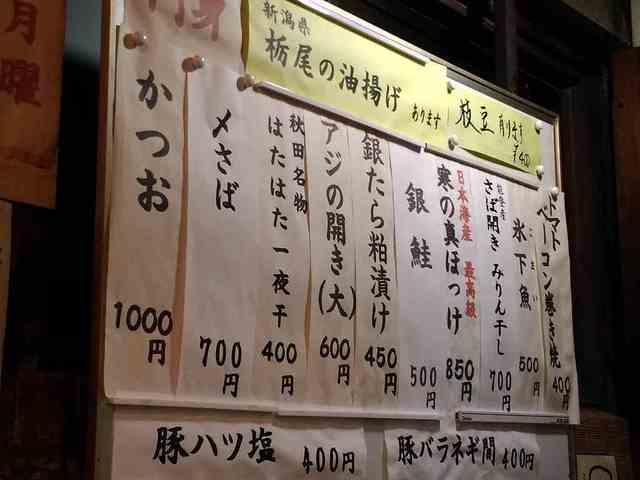 月曜
新潟県
栃尾の油揚げ
あります
枝豆
かつお
1000円
〆さば
700円
秋田名物
はたはた一夜干
400円
アジの開き(大)
600円
銀たら粕漬け
450円
銀鮭
500円
日本海産 最高級
寒の真ほっけ
850円
能登産
さば開きみりん干し
700円
こまい
氷下魚
500円
トマトベーコン巻き焼
400円
豚ハツ塩 400円
豚バラネギ間 400円